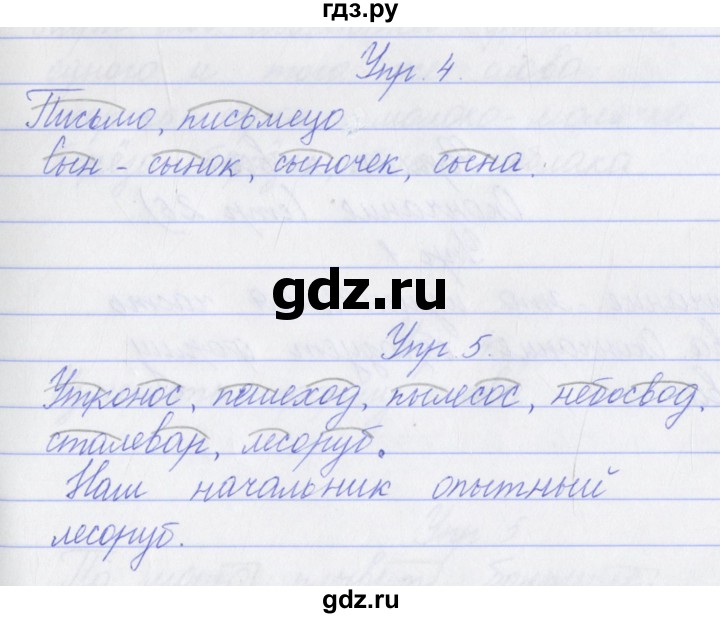 гдз.ру
Упр. 4.
Письмо, письмецо.
Сын - сынок, сыночек, сына.
gdz.ru
Упр 5.
Утконос, пешеход, пылесос, небосвод,
сталевар, лесоруб.
Наш начальник опытный
лесоруб.
gdz.ru